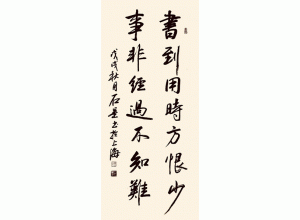 書到用時方恨少
事非經過不知難
戊戌秋月石量書於上海